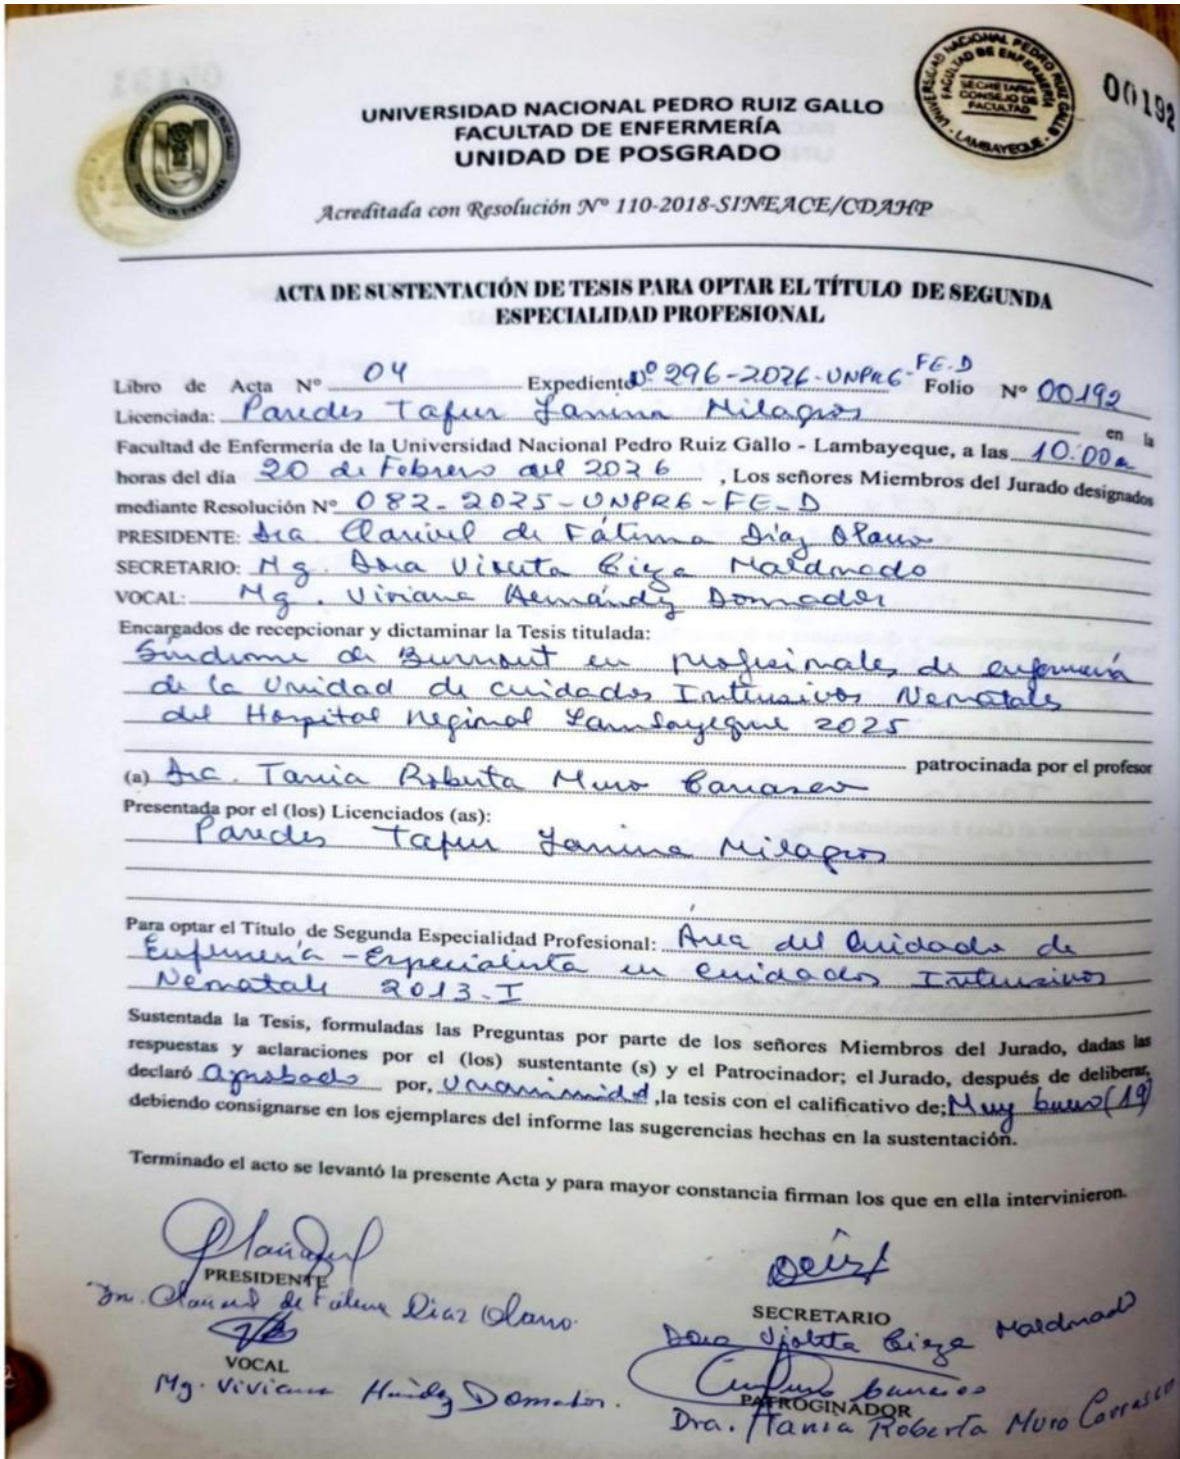 UNIVERSIDAD NACIONAL PEDRO RUIZ GALLO
FACULTAD DE ENFERMERÍA
SECRETARIA
CONSEJO DE
FACULTAD
- LAMBAYEQUE -
00192
UNIVERSIDAD NACIONAL PEDRO RUIZ GALLO
FACULTAD DE ENFERMERÍA
UNIDAD DE POSGRADO
Acreditada con Resolución Nº 110-2018-SINEACE/CDAHP
ACTA DE SUSTENTACIÓN DE TESIS PARA OPTAR EL TÍTULO DE SEGUNDA
ESPECIALIDAD PROFESIONAL
Libro de Acta Nº 04 Expediente Nº 296-2026-UNPRG-FE.D Folio Nº 00192
Licenciada: Paredes Tafur Janina Milagros en la
Facultad de Enfermería de la Universidad Nacional Pedro Ruiz Gallo - Lambayeque, a las 10:00a
horas del día 20 de Febrero del 2026, Los señores Miembros del Jurado designados
mediante Resolución Nº 082-2025-UNPRG-FE-D
PRESIDENTE: Dra Clarivel de Fátima Díaz Olano
SECRETARIO: Mg. Dora Violeta Cieza Maldonado
VOCAL: Mg. Viviana Hernández Domador
Encargados de recepcionar y dictaminar la Tesis titulada:
Síndrome de Burnout en profesionales de enfermería
de la Unidad de cuidados Intensivos Neonatales
del Hospital Regional Lambayeque 2025
patrocinada por el profesor
(a) Dra. Tania Roberta Muro Carrasco
Presentada por el (los) Licenciados (as):
Paredes Tafur Janina Milagros
Para optar el Título de Segunda Especialidad Profesional: Área del Cuidado de
Enfermería - Especialista en cuidados Intensivos
Neonatales 2013-I
Sustentada la Tesis, formuladas las Preguntas por parte de los señores Miembros del Jurado, dadas las
respuestas y aclaraciones por el (los) sustentante (s) y el Patrocinador; el Jurado, después de deliberar,
declaró aprobado por, Unanimidad ,la tesis con el calificativo de; Muy bueno (19)
debiendo consignarse en los ejemplares del informe las sugerencias hechas en la sustentación.
Terminado el acto se levantó la presente Acta y para mayor constancia firman los que en ella intervinieron.
PRESIDENTE
Clarivel de Fátima Díaz Olano.
SECRETARIO
Dora Violeta Cieza Maldonado
VOCAL
Mg. Viviana Domador.
PATROCINADOR
Dra. Tania Roberta Muro Carrasco